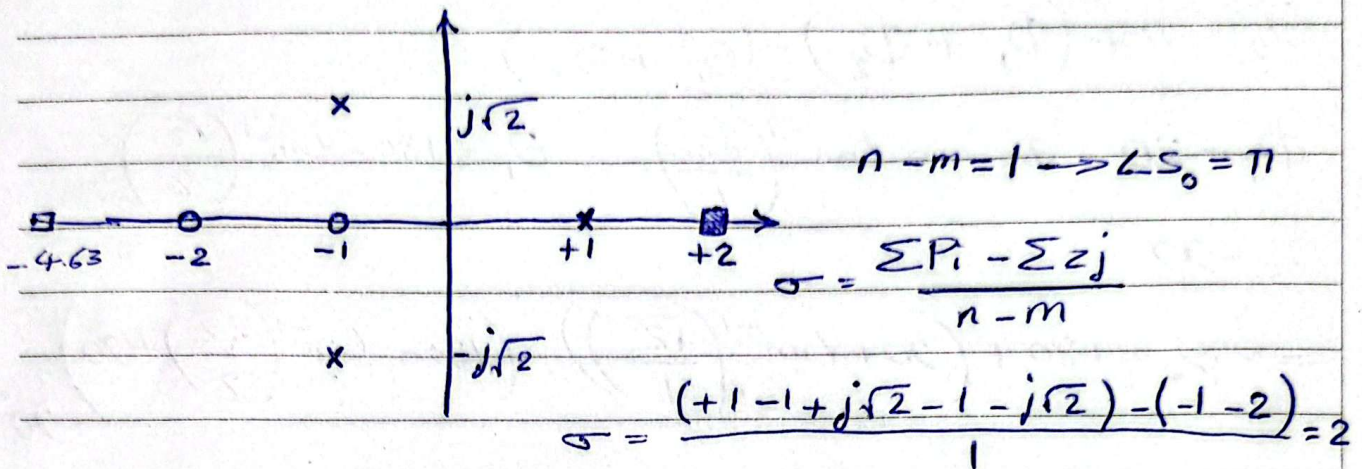 × j√2
n - m = 1 → ∠S₀ = π
-4.63 -2 -1 +1 +2
σ = ΣPi - Σzj / n - m
× -j√2
σ = (+1 -1 +j√2 -1 -j√2) - (-1 -2) / 1 = 2